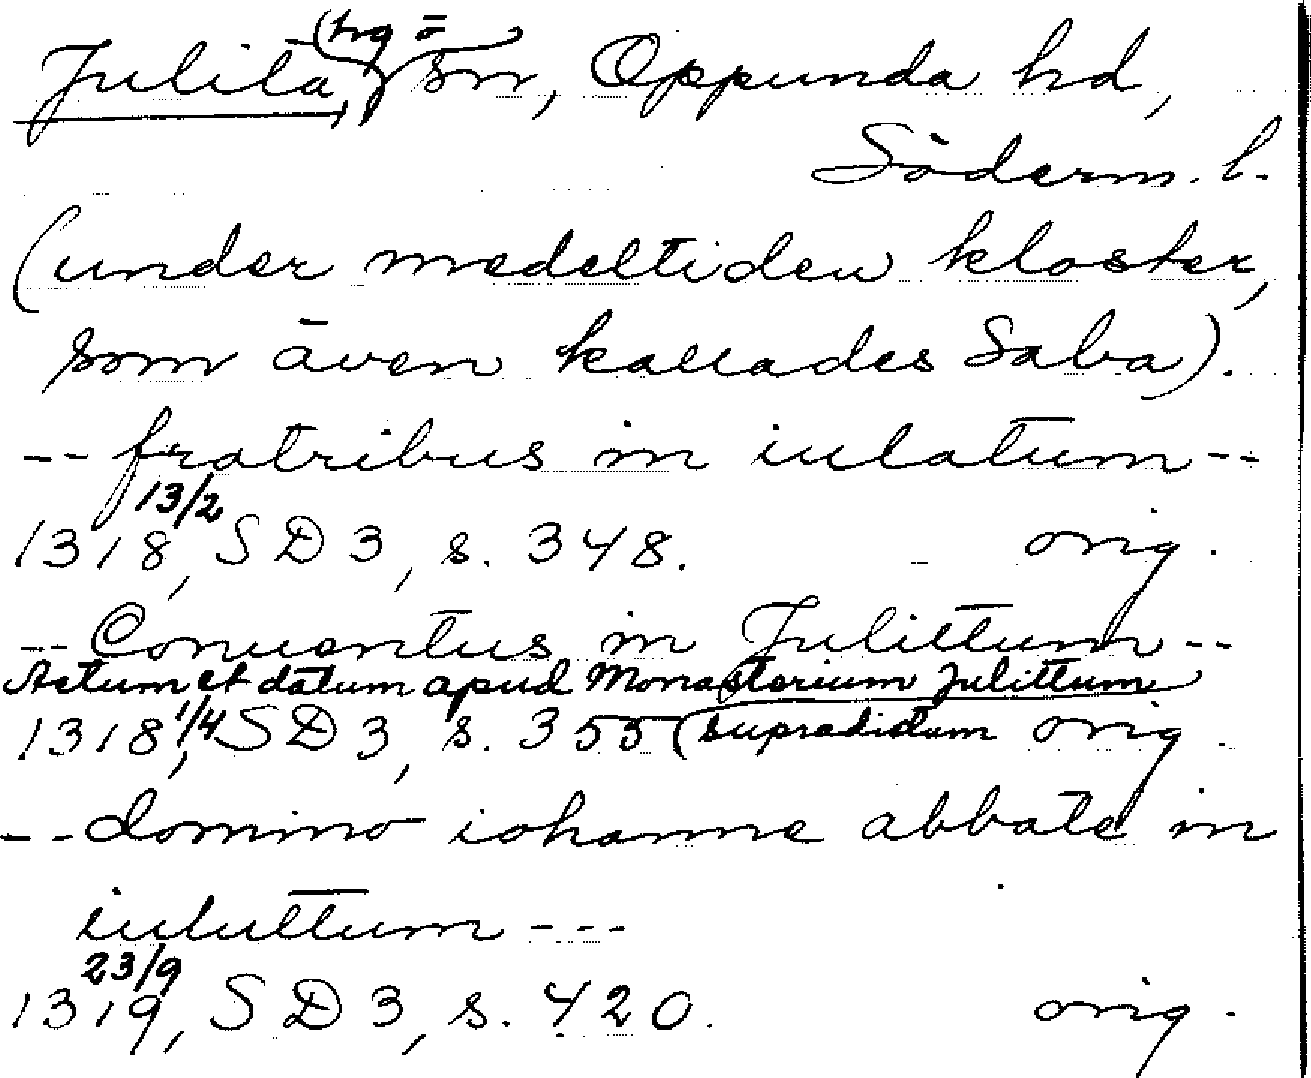 Julita, (hg o
sn, Oppunda hd,
Söderm. l.
(under medeltiden kloster,
som även kallades Saba).
-- fratribus in iulatum --
13/2
1318, SD 3, s. 348. orig.
-- Conuentus in Julittum --
Actum et datum apud Monasterium Julittum
1318 1/4, SD 3, s. 355 (supradictum orig.
-- domino iohanne abbate in
iuluttum ---
23/9
1319, SD 3, s. 420. orig.